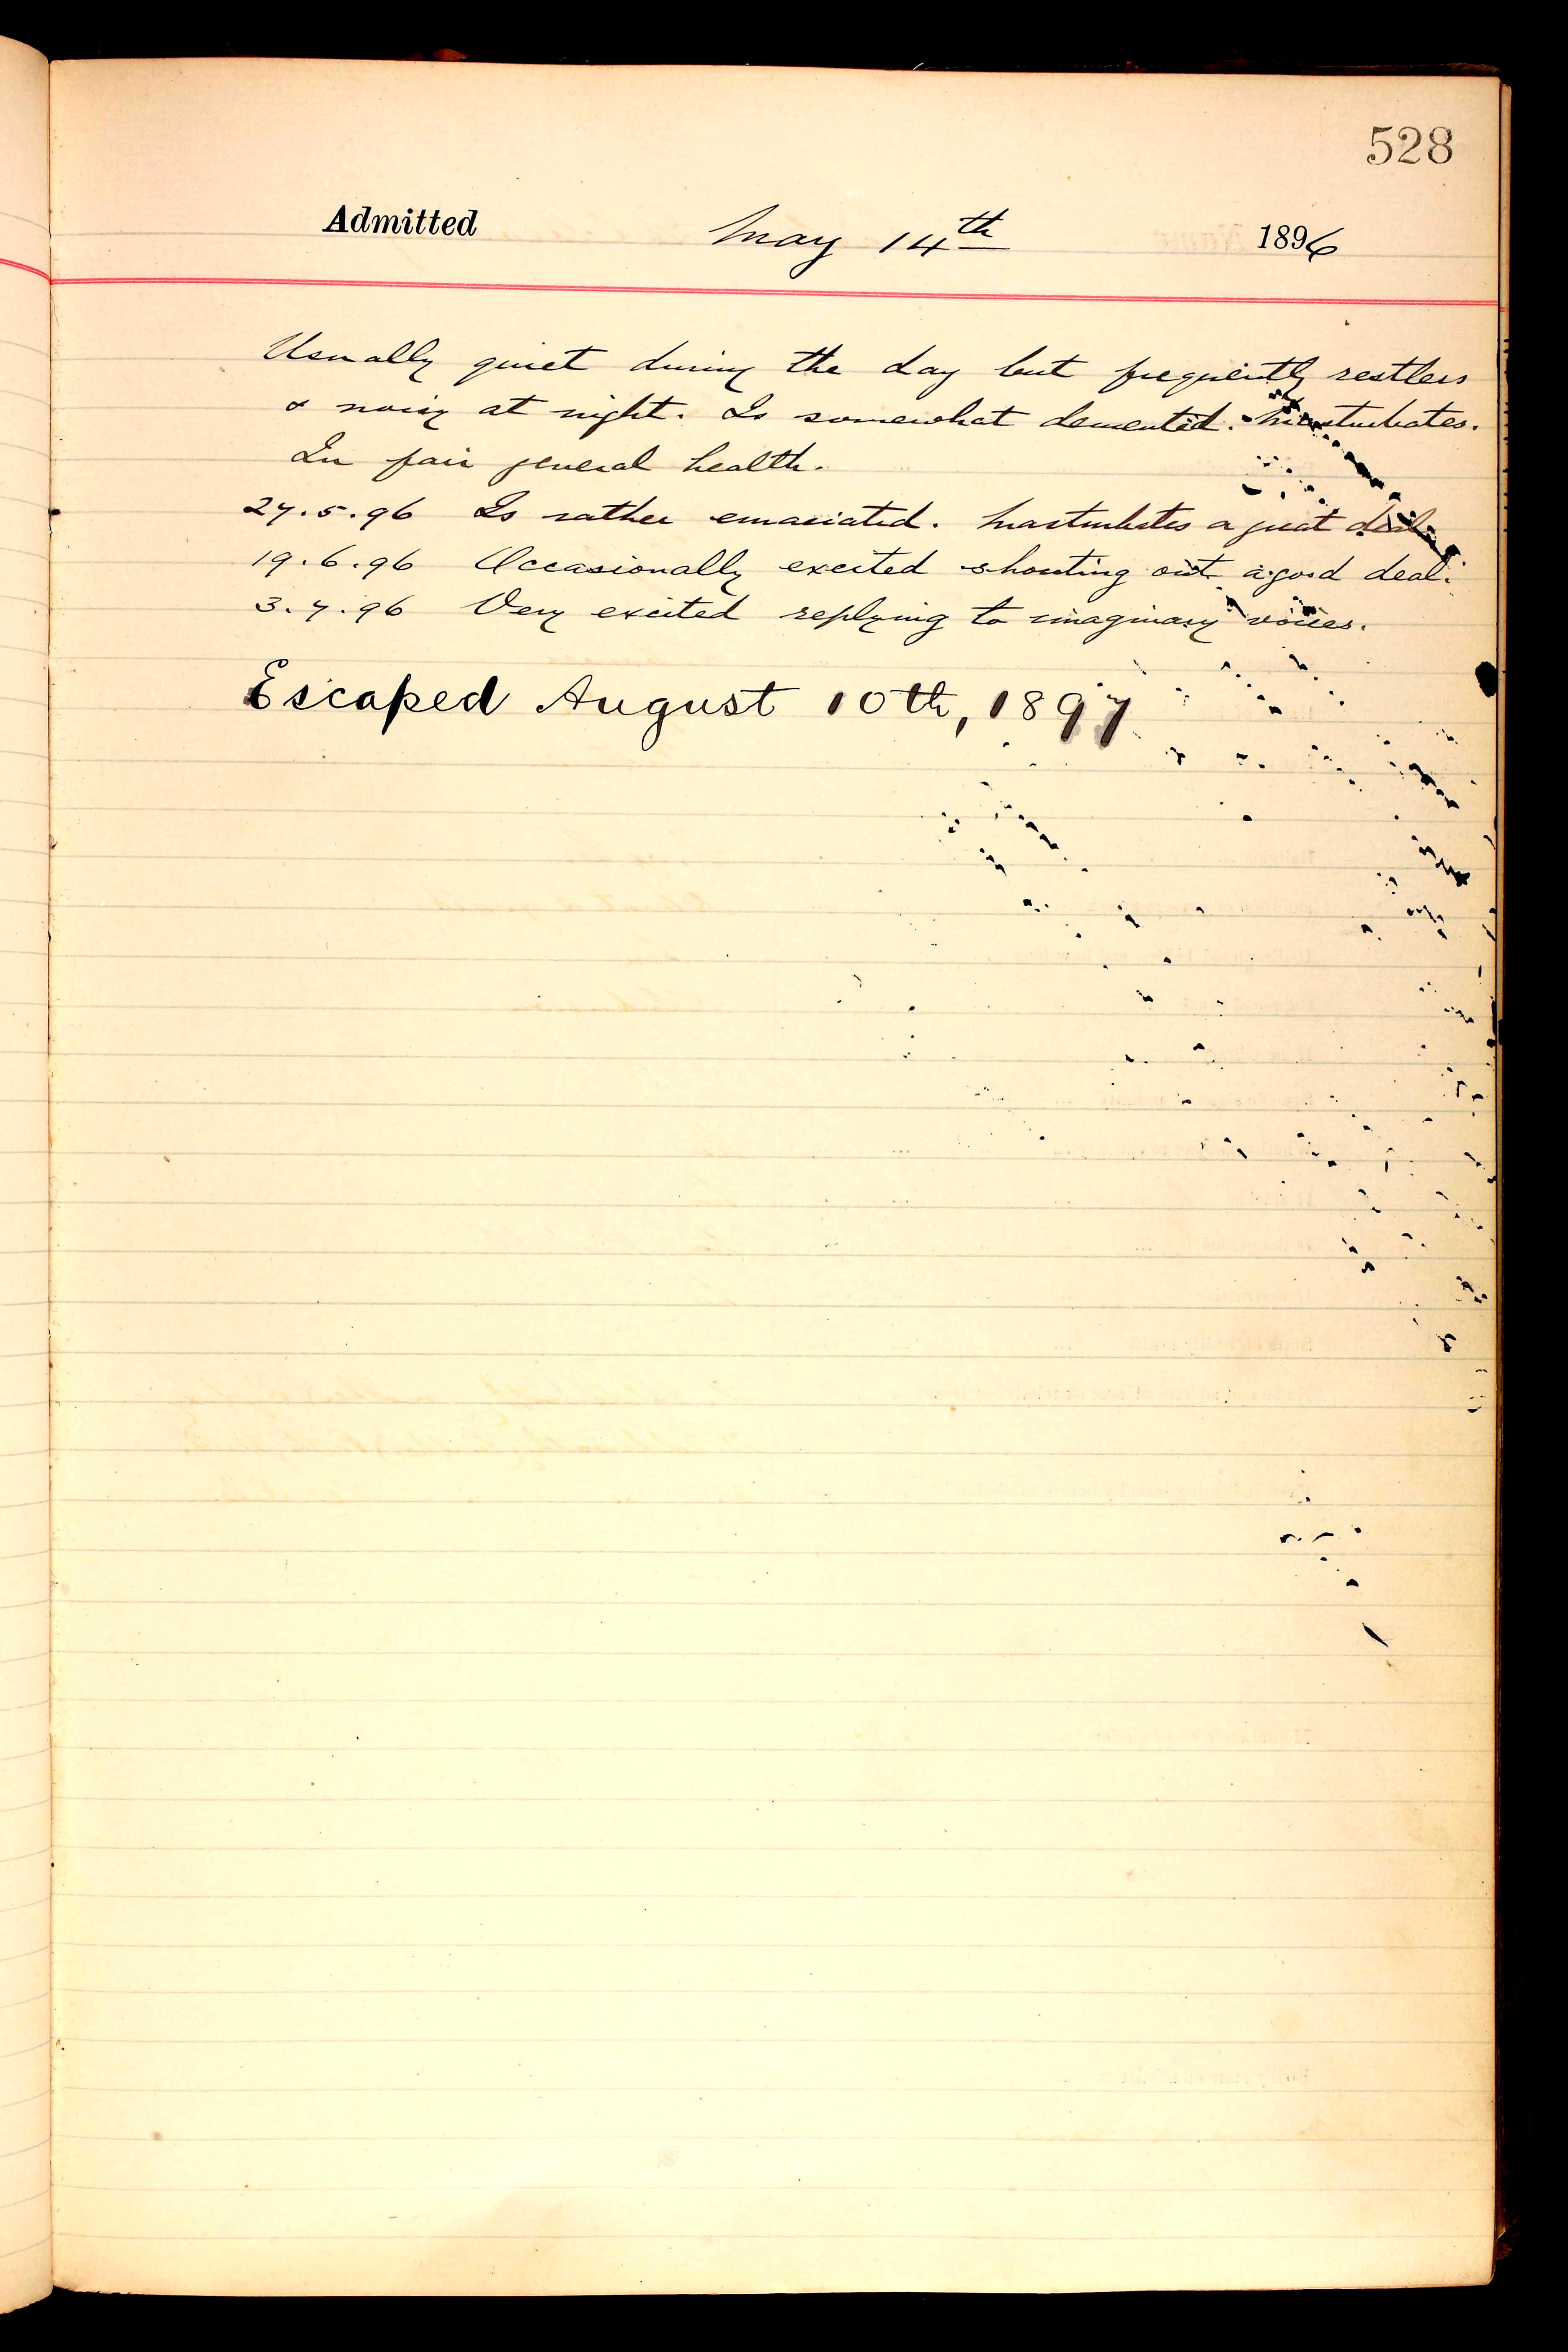 528
Admitted May 14th 1896
Usually quiet during the day but frequently restless
& noisy at night. Is somewhat demented. Masturbates.
In fair general health.
27.5.96 Is rather emaciated. Masturbates a great deal.
19.6.96 Occasionally excited shouting out a good deal.
3.7.96 Very excited replying to imaginary voices.
Escaped August 10th, 1897